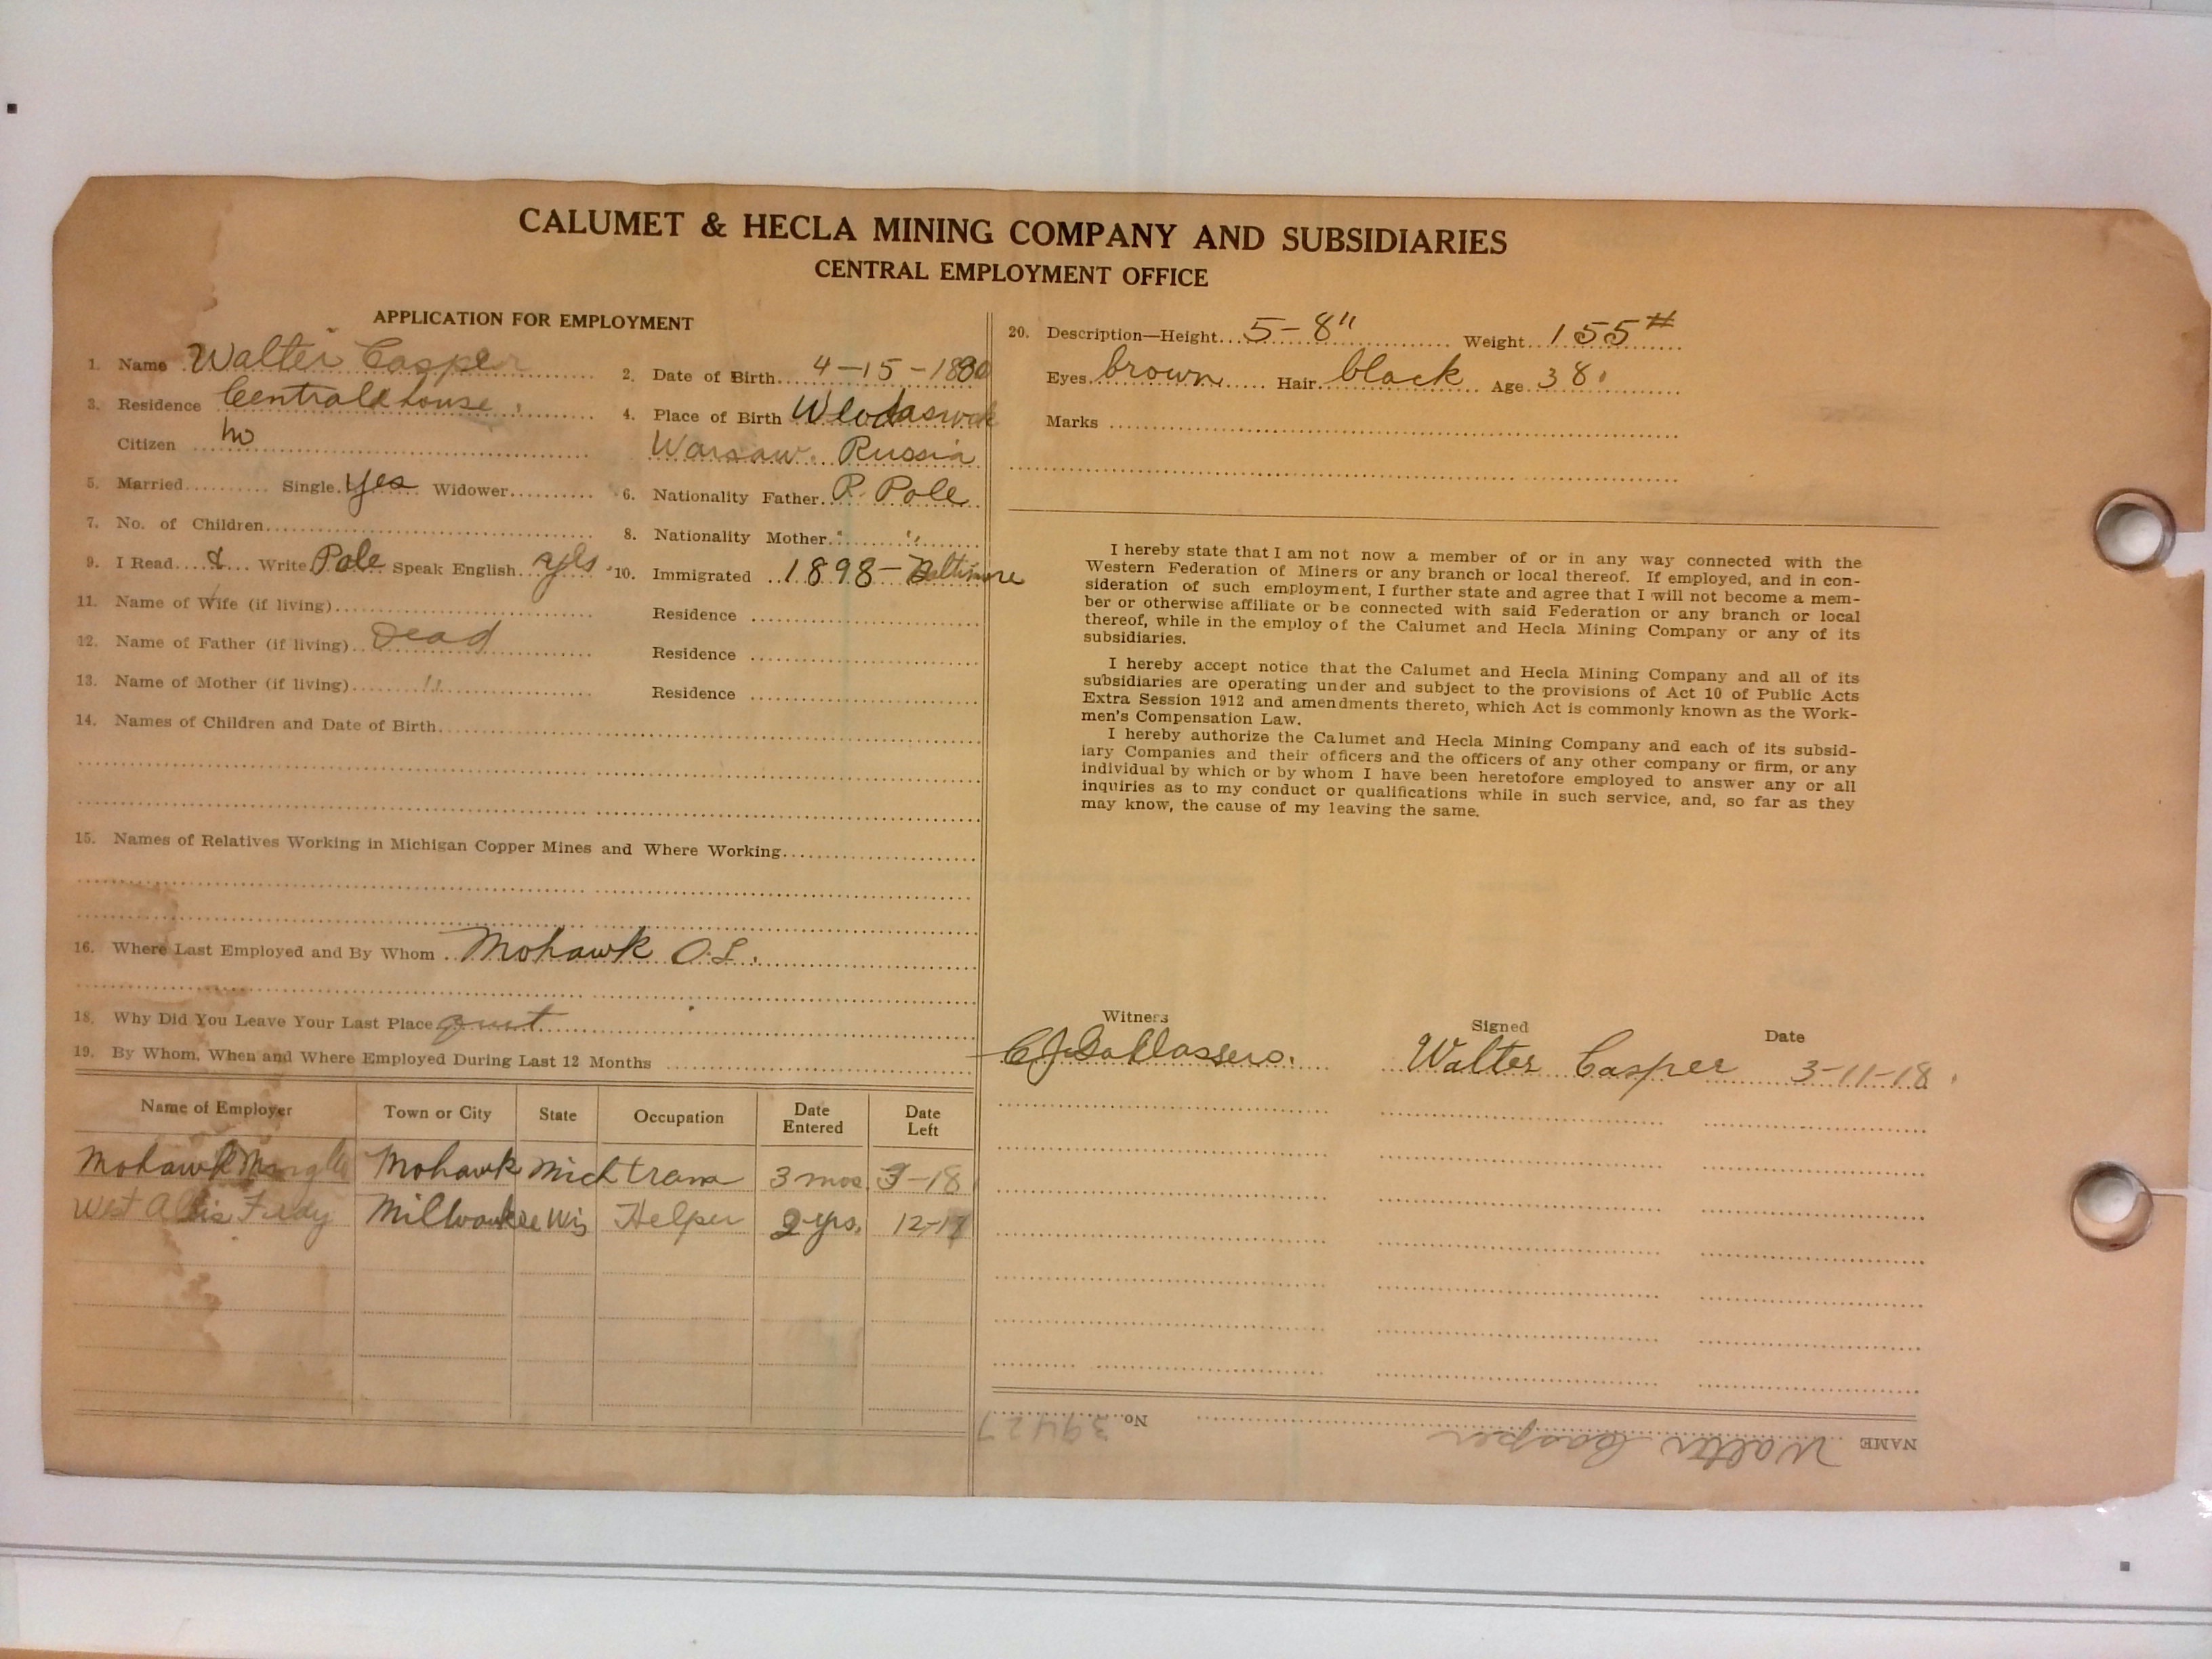 CALUMET & HECLA MINING COMPANY AND SUBSIDIARIES
CENTRAL EMPLOYMENT OFFICE
APPLICATION FOR EMPLOYMENT
1. Name Walter Casper
2. Date of Birth 4-15-1880
3. Residence Central house
4. Place of Birth
Citizen no
Warsaw. Russia
5. Married Single yes Widower
6. Nationality Father R. Pole
7. No. of Children
8. Nationality Mother " "
9. I Read & Write Pole Speak English yes
10. Immigrated 1898 - Baltimore
11. Name of Wife (if living)
Residence
12. Name of Father (if living) Dead
Residence
13. Name of Mother (if living) "
Residence
14. Names of Children and Date of Birth
15. Names of Relatives Working in Michigan Copper Mines and Where Working
16. Where Last Employed and By Whom Mohawk
18. Why Did You Leave Your Last Place quit
19. By Whom, When and Where Employed During Last 12 Months
Name of Employer Town or City State Occupation Date Entered Date Left
Mohawk Mohawk Mich tram 3 mos. 3-18
West Allis Milwaukee Wis Helper 2 yrs. 12-17
20. Description—Height 5-8" Weight 155#
Eyes brown Hair black Age 38
Marks
I hereby state that I am not now a member of or in any way connected with the
Western Federation of Miners or any branch or local thereof. If employed, and in con-
sideration of such employment, I further state and agree that I will not become a mem-
ber or otherwise affiliate or be connected with said Federation or any branch or local
thereof, while in the employ of the Calumet and Hecla Mining Company or any of its
subsidiaries.
I hereby accept notice that the Calumet and Hecla Mining Company and all of its
subsidiaries are operating under and subject to the provisions of Act 10 of Public Acts
Extra Session 1912 and amendments thereto, which Act is commonly known as the Work-
men's Compensation Law.
I hereby authorize the Calumet and Hecla Mining Company and each of its subsid-
iary Companies and their officers and the officers of any other company or firm, or any
individual by which or by whom I have been heretofore employed to answer any or all
inquiries as to my conduct or qualifications while in such service, and, so far as they
may know, the cause of my leaving the same.
Witness Signed Date
Walter Casper 3-11-18
NAME Walter Casper No. 39427